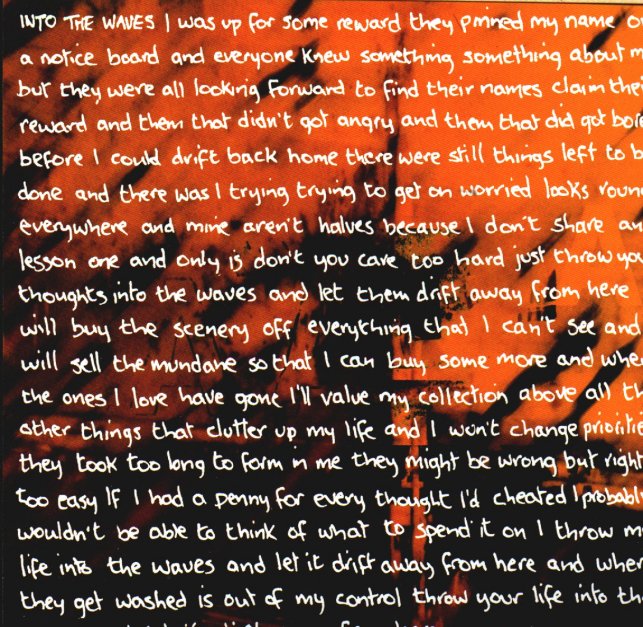 INTO THE WAVES I was up for some reward they pinned my name o
a notice board and everyone knew something something about m
but they were all looking forward to find their names claim thei
reward and them that didn't got angry and them that did got bore
before I could drift back home there were still things left to b
done and there was I trying trying to get on worried looks roun
everywhere and mine aren't halves because I don't share an
lesson one and only is don't you care too hard just throw you
thoughts into the waves and let them drift away from here
will buy the scenery off everything that I can't see and
will sell the mundane so that I can buy some more and whe
the ones I love have gone I'll value my collection above all th
other things that clutter up my life and I won't change prioritie
they took too long to form in me they might be wrong but right
too easy If I had a penny for every thought I'd cheated I probabl
wouldn't be able to think of what to spend it on I throw m
life into the waves and let it drift away from here and wher
they get washed is out of my control throw your life into th